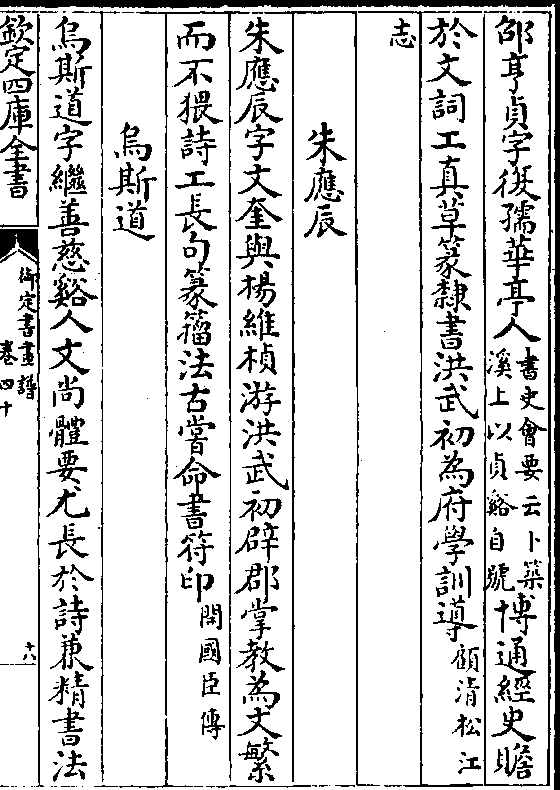 邵亨貞字復孺華亭人書史會要云卜築溪上以貞谿自號博通經史贍
於文詞工真草篆隸書洪武初為府學訓導顧清松江
志
朱應辰
朱應辰字文奎與楊維楨游洪武初辟郡掌教為文繁
而不猥詩工長句篆籀法古嘗命書符印開國臣傳
烏斯道
烏斯道字繼善慈谿人文尚體要尤長於詩兼精書法
欽定四庫全書
御定書畫譜
卷四十
十八